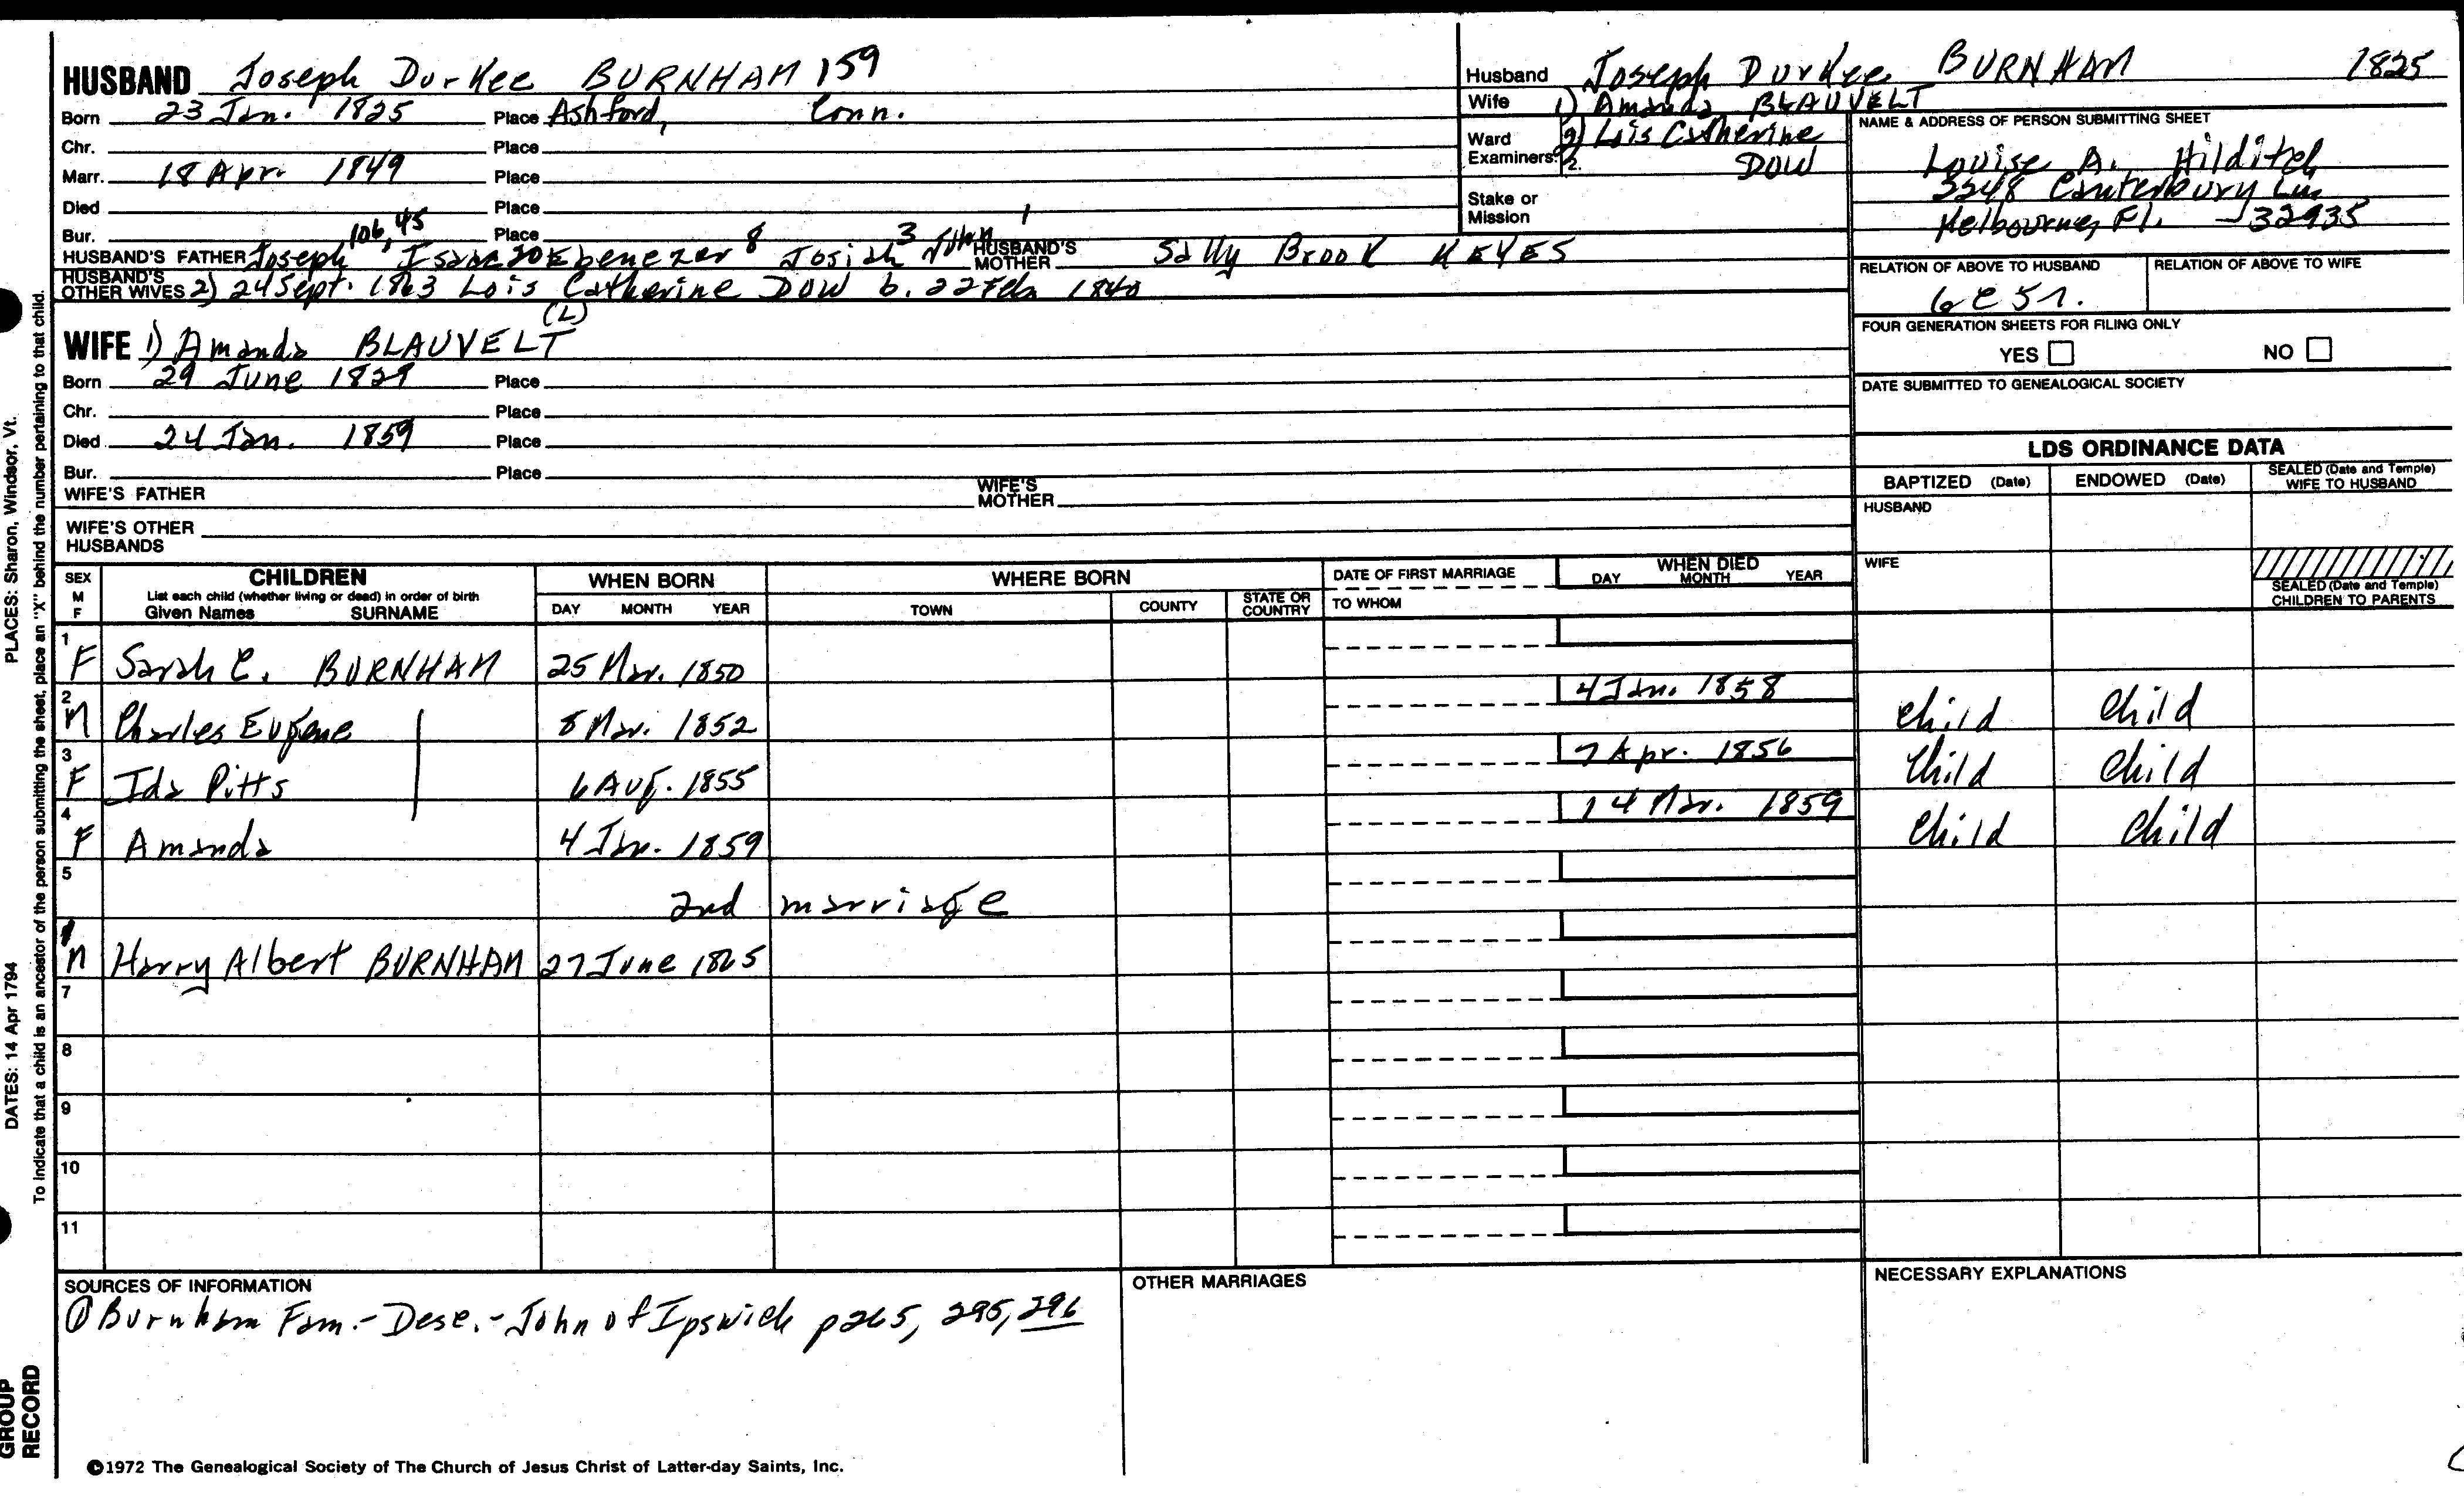 HUSBAND Joseph Durkee BURNHAM 159
Born 23 Jan. 1825 Place Ashford, Conn.
Chr. Place
Marr. 18 Apr. 1849 Place
Died Place
Bur. Place
106, 45 8 3 1
HUSBAND'S FATHER Joseph, Isaac 20 Ebenezer Josiah John HUSBAND'S MOTHER Sally Brook KEYES
HUSBAND'S OTHER WIVES 2) 24 Sept. 1863 Lois Catherine DOW b. 22 Feb. 1840
(L)
WIFE 1) Amanda BLAUVELT
Born 29 June 1829 Place
Chr. Place
Died 24 Jan. 1859 Place
Bur. Place
WIFE'S FATHER WIFE'S MOTHER
WIFE'S OTHER HUSBANDS
Husband Joseph Durkee BURNHAM 1825
Wife 1) Amanda BLAUVELT
Ward Examiners: 2) Lois Catherine
2. DOW
Stake or Mission
NAME & ADDRESS OF PERSON SUBMITTING SHEET
Louise A. Hilditch
Canterbury Ln
Melbourne, Fl. 32935
RELATION OF ABOVE TO HUSBAND RELATION OF ABOVE TO WIFE
FOUR GENERATION SHEETS FOR FILING ONLY
YES NO
DATE SUBMITTED TO GENEALOGICAL SOCIETY
LDS ORDINANCE DATA
BAPTIZED (Date) ENDOWED (Date) SEALED (Date and Temple) WIFE TO HUSBAND
HUSBAND
WIFE
SEALED (Date and Temple) CHILDREN TO PARENTS
SEX M F CHILDREN WHEN BORN WHERE BORN DATE OF FIRST MARRIAGE WHEN DIED
List each child (whether living or dead) in order of birth
Given Names SURNAME DAY MONTH YEAR TOWN COUNTY STATE OR COUNTRY TO WHOM DAY MONTH YEAR
1 F Sarah C. BURNHAM 25 Mar. 1850
2 M Charles Eugene 8 Mar. 1852 4 Jan. 1858 Child Child
3 F Ida Pitts 6 Aug. 1855 7 Apr. 1856 Child Child
4 F Amanda 4 Jan. 1859 14 Mar. 1859 Child Child
5 2nd marriage
M Harry Albert BURNHAM 27 June 1865
7
8
9
10
11
SOURCES OF INFORMATION
① Burnham Fam.-Desc.-John of Ipswich p265, 295, 296
OTHER MARRIAGES
NECESSARY EXPLANATIONS
©1972 The Genealogical Society of The Church of Jesus Christ of Latter-day Saints, Inc.
PLACES: Sharon, Windsor, Vt.
DATES: 14 Apr 1794
To indicate that a child is an ancestor of the person submitting the sheet, place an "X" behind the number pertaining to that child.
GROUP
RECORD